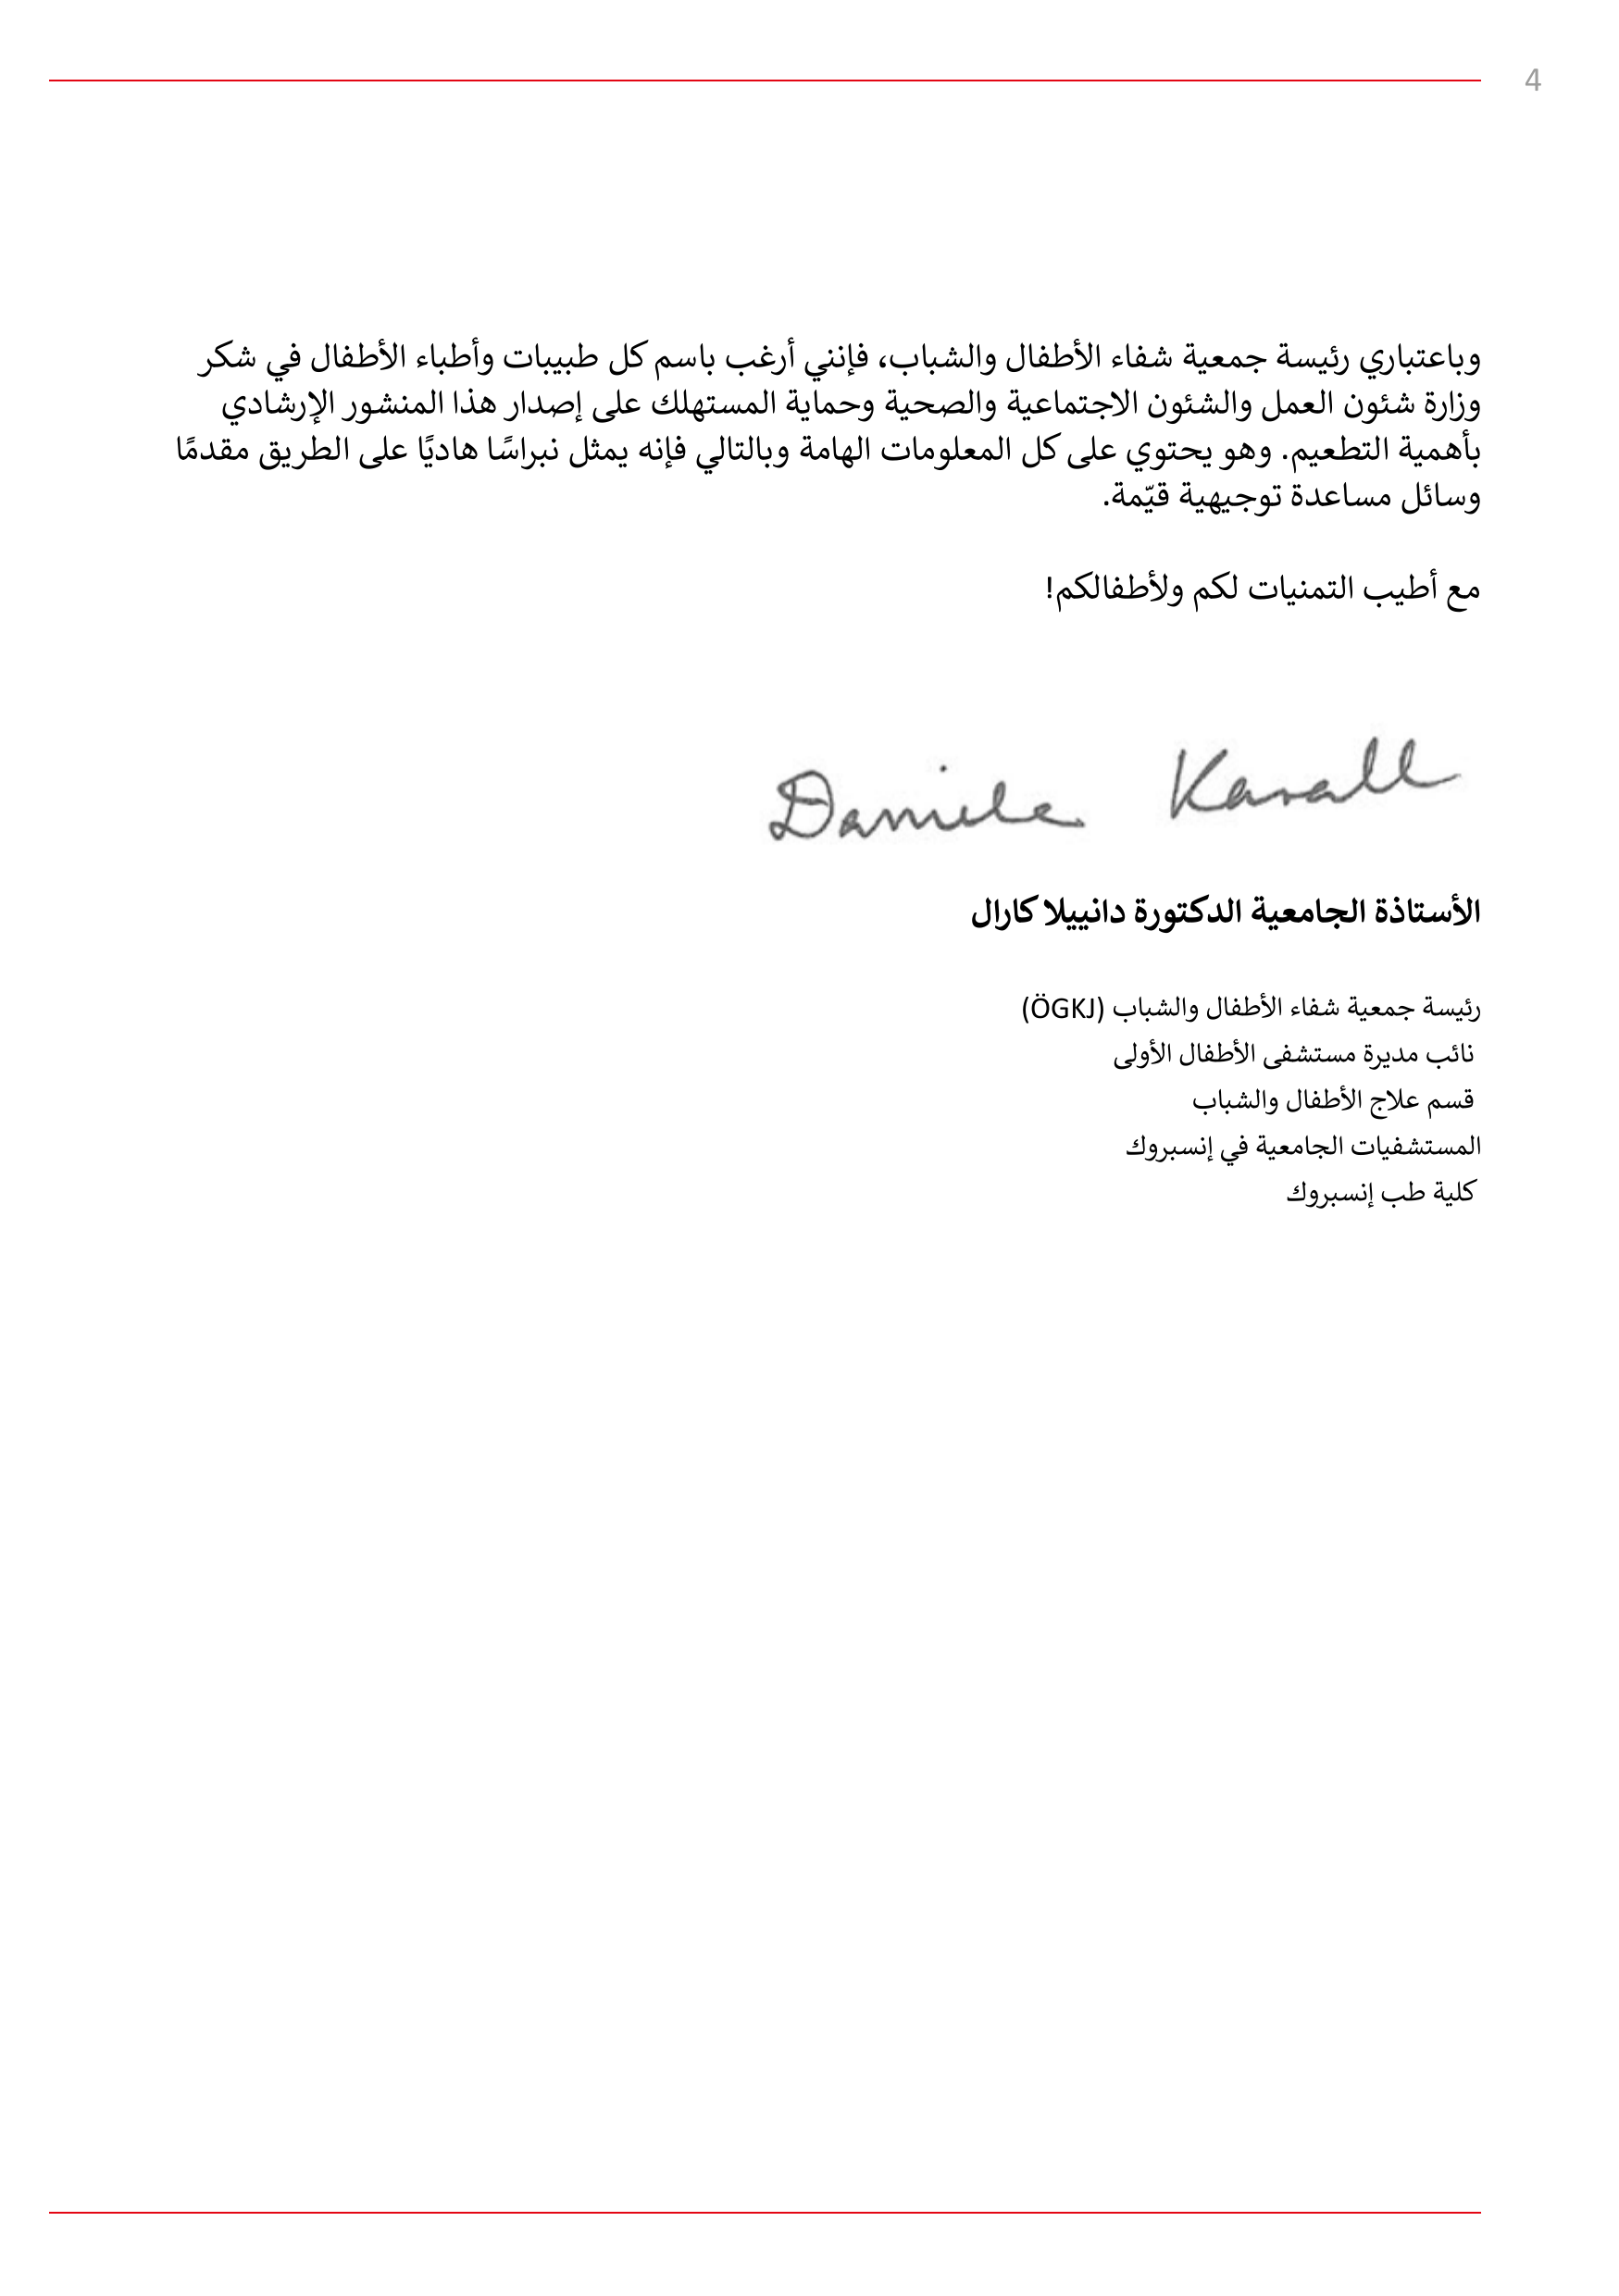 4
وباعتباري رئيسة جمعية شفاء الأطفال والشباب، فإنني أرغب باسم كل طبيبات وأطباء الأطفال في شكر
وزارة شئون العمل والشئون الاجتماعية والصحية وحماية المستهلك على إصدار هذا المنشور الإرشادي
بأهمية التطعيم. وهو يحتوي على كل المعلومات الهامة وبالتالي فإنه يمثل نبراسًا هاديًا على الطريق مقدمًا
وسائل مساعدة توجيهية قيّمة.
مع أطيب التمنيات لكم ولأطفالكم!
Daniela Karall
الأستاذة الجامعية الدكتورة دانييلا كارال
رئيسة جمعية شفاء الأطفال والشباب (ÖGKJ)
نائب مديرة مستشفى الأطفال الأولى
قسم علاج الأطفال والشباب
المستشفيات الجامعية في إنسبروك
كلية طب إنسبروك